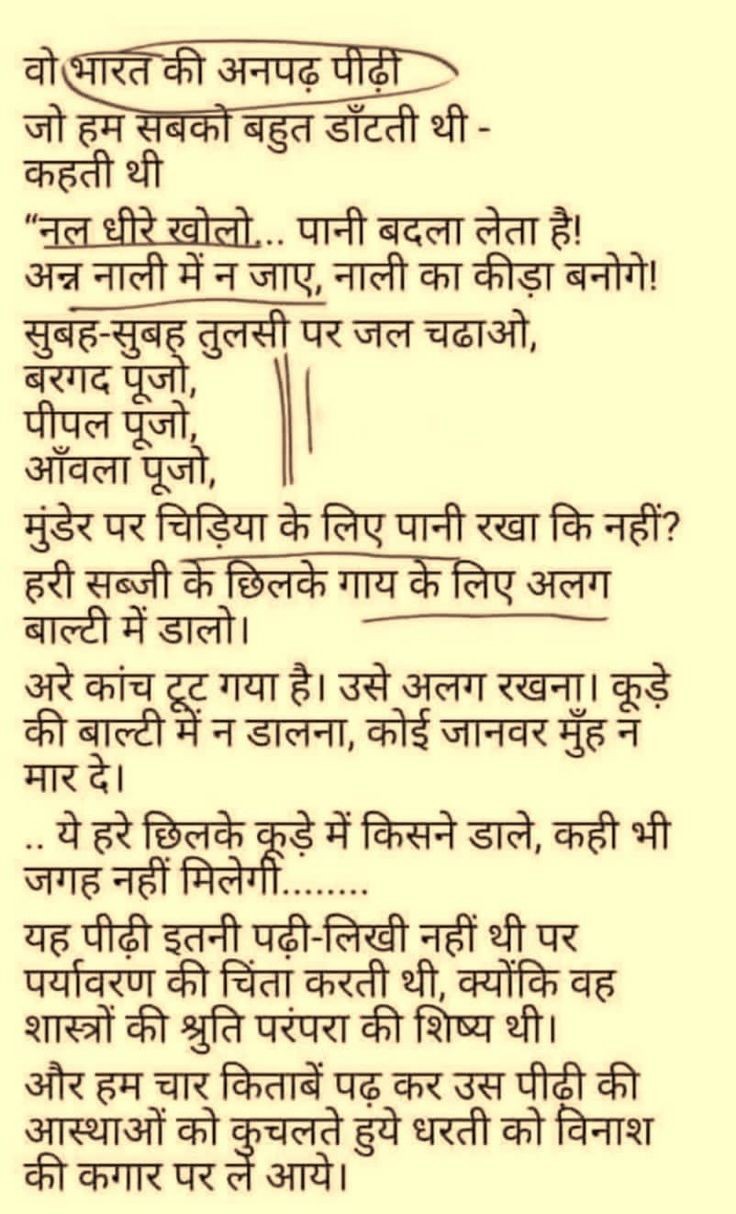 वो भारत की अनपढ़ पीढ़ी
जो हम सबको बहुत डाँटती थी -
कहती थी
“नल धीरे खोलो... पानी बदला लेता है!
अन्न नाली में न जाए, नाली का कीड़ा बनोगे!
सुबह-सुबह तुलसी पर जल चढाओ,
बरगद पूजो,
पीपल पूजो,
आँवला पूजो,
मुंडेर पर चिड़िया के लिए पानी रखा कि नहीं?
हरी सब्जी के छिलके गाय के लिए अलग
बाल्टी में डालो।
अरे कांच टूट गया है। उसे अलग रखना। कूड़े
की बाल्टी में न डालना, कोई जानवर मुँह न
मार दे।
.. ये हरे छिलके कूड़े में किसने डाले, कही भी
जगह नहीं मिलेगी........
यह पीढ़ी इतनी पढ़ी-लिखी नहीं थी पर
पर्यावरण की चिंता करती थी, क्योंकि वह
शास्त्रों की श्रुति परंपरा की शिष्य थी।
और हम चार किताबें पढ़ कर उस पीढ़ी की
आस्थाओं को कुचलते हुये धरती को विनाश
की कगार पर ले आये।